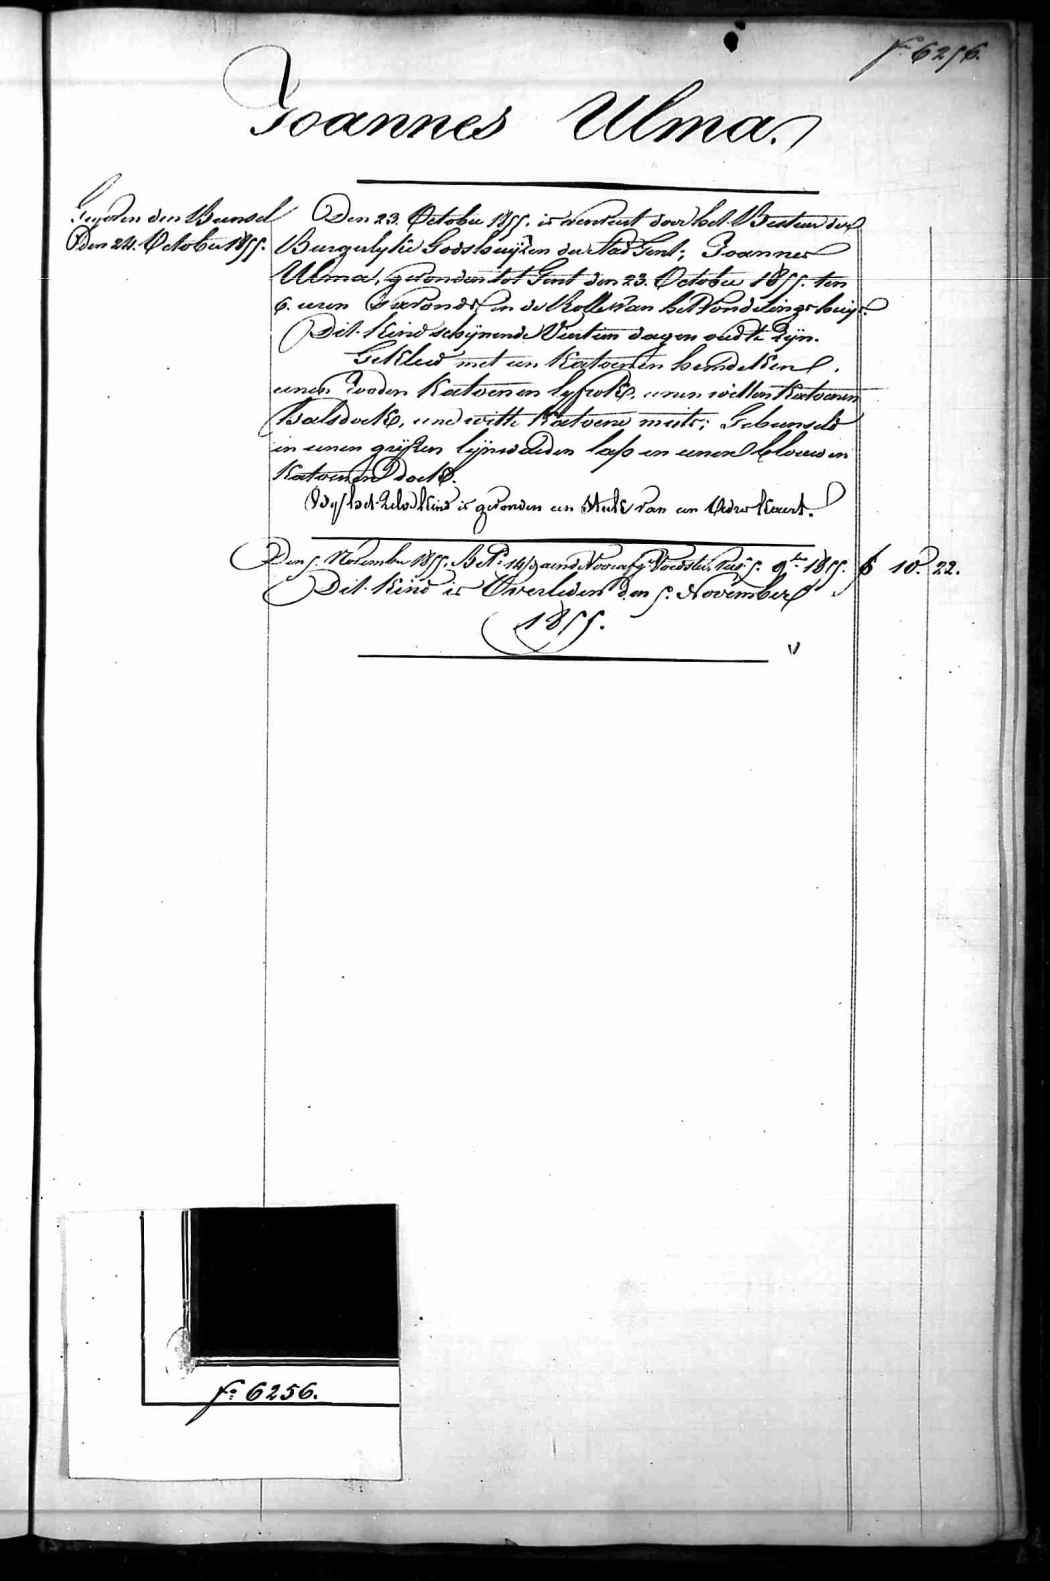 fº 6256.
Joannes Ulma.
Gegeven den Bunsel
Den 24. October 1855.
Den 23. October 1855. is door het Bestier der
Burgerlyke Godshuijzen der Stad Gent; Joannes
Ulma, gevonden tot Gent den 23. October 1855. ten
6. uren s'avonds, in de Rolle van het Vondelingshuijs.
Dit kind schijnende Veertien dagen oud te zijn.
Gekleed met een Katoenen hemdeken,
eenen rooden Katoenen lyfrok, eenen witten Katoenen
halsdoek, eene witte Katoene muts; Gebunseld
in eenen grijzen lijnwaeden lap en eenen blouwen
Katoenen doek.
Bij het zelve kind is gevonden een Stuk van een
Den 5. November 1855. Betd. aend Voedster 5. 9bre 1855. 6 10. 22.
Dit kind is Overleden den 5. November
1855.
fº 6256.